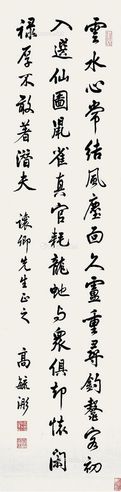 雲水心常結風塵面久盧重尋釣鰲客初
入選仙圖鼠雀真官耗龍蛇與衆俱却懷閒
祿厚不敢著潛夫
讓卿先生正之
高毓浵